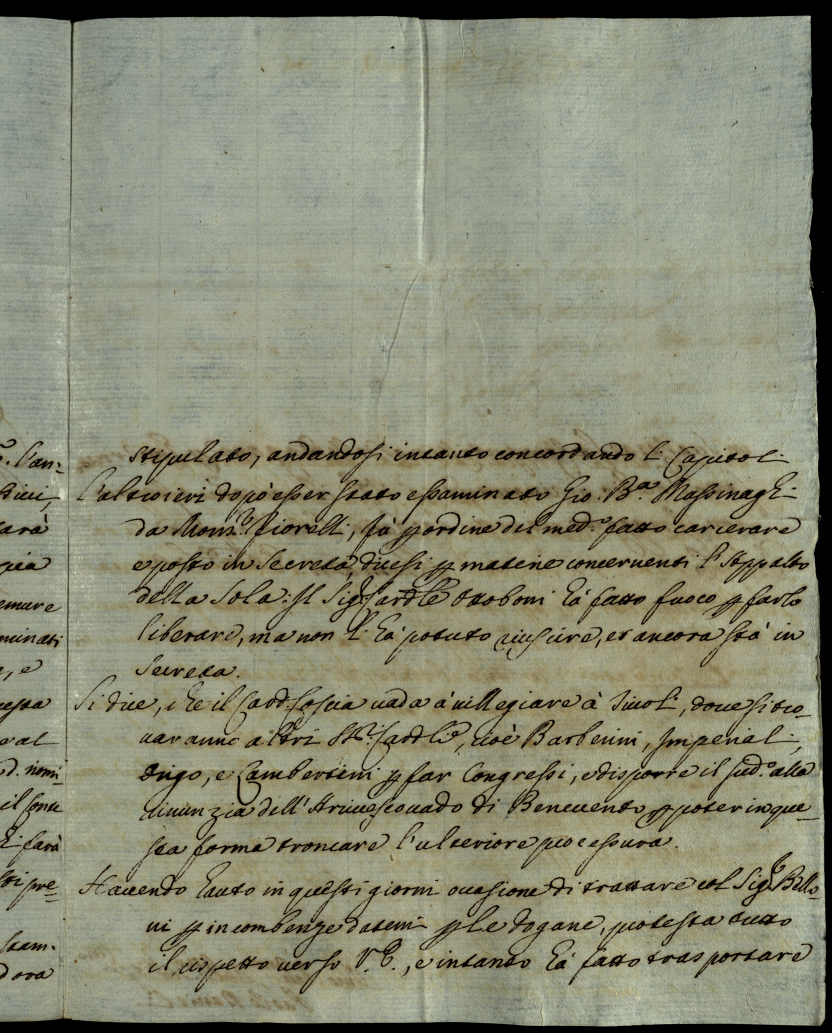 o. l'an=
stipulato, andandosi intanto concordando li Capitoli
L'altroieri dopò esser stato essaminato Gio: Bãa Massinaghi
da Mons.re Fiorelli, fù p ordine del med.o fatto carcerare
e posto in Secreta, dicesi p materie concernenti l'Appalto
della Sola: Il Sig.r Cardle Ottoboni hà fatto fuoco p farlo
liberare, ma non li hà potuto riuscire, et ancora stà in
Secreta.
Si dice, che il Card: Coscia vada à villegiare à Tivoli, dove si tro=
varanno altri SS.ri Cardli, cioè Barberini, Imperiali,
Origo, e Lambertini p far Congressi, e disporre il sud.o alla
rinunzia dell'Arcivescovado di Benevento p poter in que=
sta forma troncare l'ulteriore processura.
Havendo hauto in questi giorni occasione di trattare col Sig.r Bello=
ni p incombenze datemi p le dogane, protesta tutto
il rispetto verso V.E., e intanto hà fatto trasportare
arà
emure
minati
a, e
uesta
e al
d. nomi=
hi farà
pre=
stam.
dora